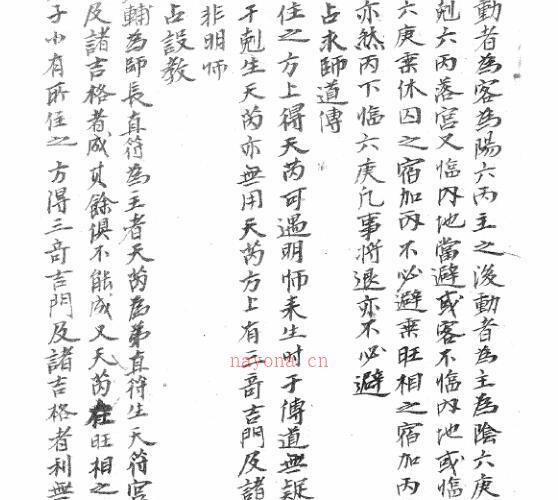 動者為客為陽六丙主之後動者為主為陰六庚
剋六丙落宮又臨內地當避或客不臨內地或臨
六庚乘休囚之宿加丙不必避乘旺相之宿加丙
亦然丙下臨六庚凡事將退亦不必避
占求師道傳
住之方上得天芮可遇明師来生时干傳道無疑
干剋生天芮亦無用天芮方上有三奇吉門及諸
非明师
占設教
輔為師長直符為主者天芮為弟直符生天符宮
及諸吉格者成其餘俱不能成又天芮在旺相之
子小有所住之方得三奇吉門及諸吉格者利無
nayona.cn